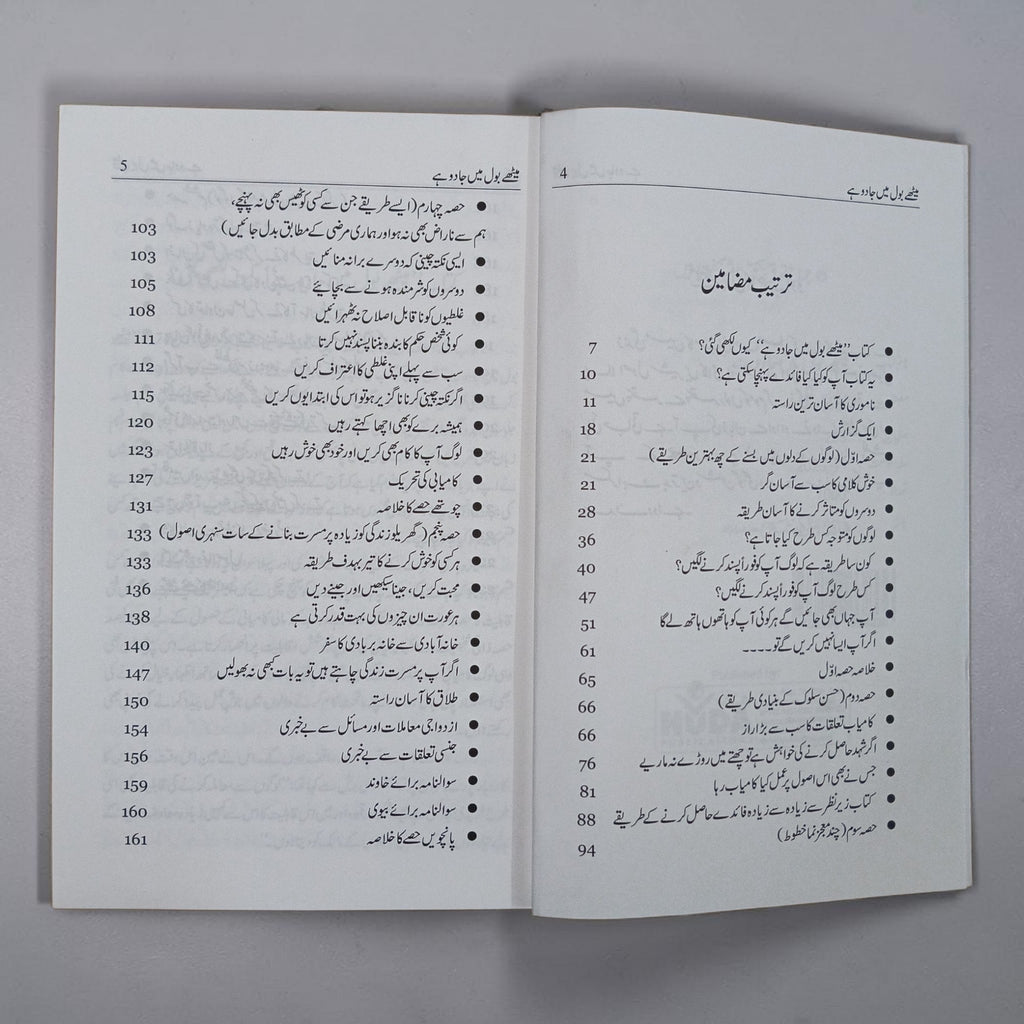 4 میٹھے بول میں جادو ہے
ترتیب مضامین
● کتاب ”میٹھے بول میں جادو ہے“ کیوں لکھی گئی؟ 7
● یہ کتاب آپ کو کیا کیا فائدے پہنچا سکتی ہے؟ 10
● ناموری کا آسان ترین راستہ 11
● ایک گزارش 18
● حصہ اوّل (لوگوں کے دلوں میں بسنے کے چھ بہترین طریقے) 21
● خوش کلامی کا سب سے آسان گر 21
● دوسروں کو متاثر کرنے کا آسان طریقہ 28
● لوگوں کو متوجہ کس طرح کیا جاتا ہے؟ 36
● کون سا طریقہ ہے کہ لوگ آپ کو فوراً پسند کرنے لگیں؟ 40
● کس طرح لوگ آپ کو فوراً پسند کرنے لگیں؟ 47
● آپ جہاں بھی جائیں گے ہر کوئی آپ کو ہاتھوں ہاتھ لے گا 51
● اگر آپ ایسا نہیں کریں گے تو۔۔۔۔ 61
● خلاصہ حصہ اوّل 65
● حصہ دوم (حسن سلوک کے بنیادی طریقے) 66
● کامیاب تعلقات کا سب سے بڑا راز 66
● اگر شہد حاصل کرنے کی خواہش ہے تو چھتے میں روڑے نہ ماریے 76
● جس نے بھی اس اصول پر عمل کیا کامیاب رہا 81
● کتاب زیر نظر سے زیادہ سے زیادہ فائدے حاصل کرنے کے طریقے 88
● حصہ سوم (چند معجز نما خطوط) 94
5 میٹھے بول میں جادو ہے
● حصہ چہارم (ایسے طریقے جن سے کسی کو ٹھیس بھی نہ پہنچے،
ہم سے ناراض بھی نہ ہو اور ہماری مرضی کے مطابق بدل جائیں) 103
● ایسی نکتہ چینی کہ دوسرے برا نہ منائیں 103
● دوسروں کو شرمندہ ہونے سے بچائیے 105
● غلطیوں کو ناقابل اصلاح نہ ٹھہرائیں 108
● کوئی شخص حکم کا بندہ بننا پسند نہیں کرتا 111
● سب سے پہلے اپنی غلطی کا اعتراف کریں 112
● اگر نکتہ چینی کرنا ناگزیر ہو تو اس کی ابتدا یوں کریں 115
● ہمیشہ برے کو بھی اچھا کہتے رہیں 120
● لوگ آپ کا کام بھی کریں اور خود بھی خوش رہیں 123
● کامیابی کی تحریک 127
● چوتھے حصے کا خلاصہ 131
● حصہ پنجم (گھریلو زندگی کو زیادہ پر مسرت بنانے کے سات سنہری اصول) 133
● ہر کسی کو خوش کرنے کا تیر بہدف طریقہ 133
● محبت کریں، جینا سیکھیں اور جینے دیں 136
● ہر عورت ان چیزوں کی بہت قدر کرتی ہے 138
● خانہ آبادی سے خانہ بربادی کا سفر 140
● اگر آپ پر مسرت زندگی چاہتے ہیں تو یہ بات کبھی نہ بھولیں 147
● طلاق کا آسان راستہ 150
● ازدواجی معاملات اور مسائل سے بے خبری 154
● جنسی تعلقات سے بے خبری 156
● سوالنامہ برائے خاوند 159
● سوالنامہ برائے بیوی 160
● پانچویں حصے کا خلاصہ 161